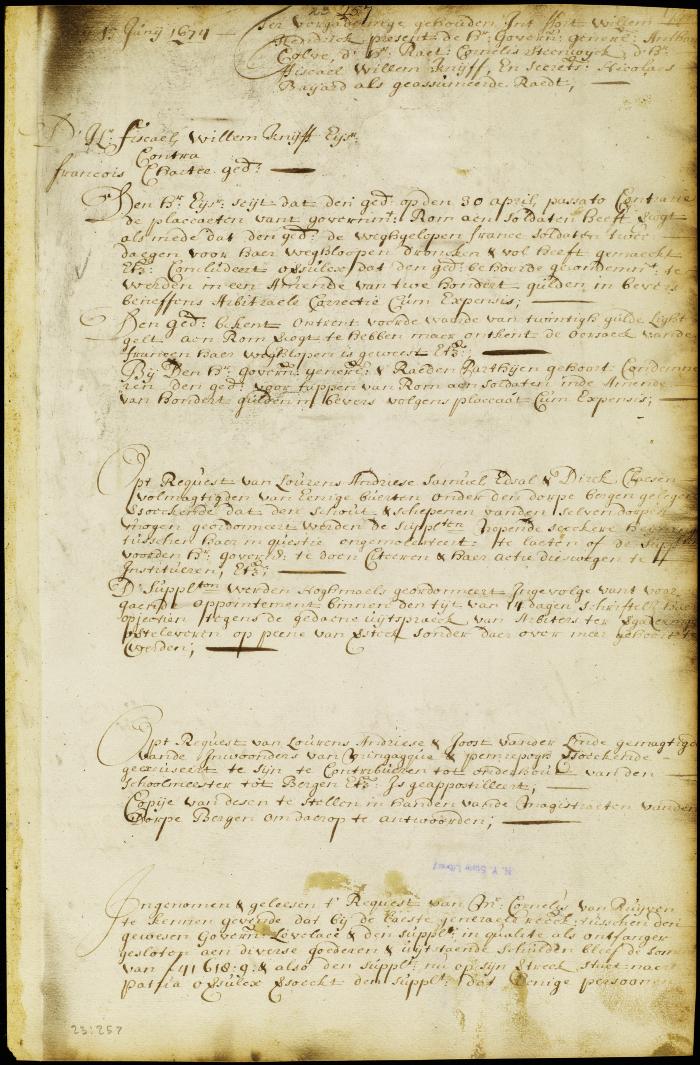 13 Junij 1674
Ter vergaderinge gehouden Int Fort Willem
Hendrick present de Hr. Govern: gener: Anthony
Colve, d' Hr. Raet: Cornelis Steenwyck d' Hr.
Fiscael Willem Knijff, En Secrets: Nicolaes
Bayard als geassumeerde Raedt;
D' Hr. fiscael, Willem Knijff Eysr.
Contra
francois Chartee ged:
Den Hr. Eysr. seijt dat den ged: op den 30 april passato Contrarie
de placcaeten vant governmt: Rom aen soldaten heeft
als mede dat den ged: de weghgelopen france soldaten twee
daegen voor haer weghloopen droncken & vol heeft gemaeckt
Etc: Concludeert dat den ged: behoorde gecondemnt: te
werden in een Amende van twe hondert gulden in bevers
beneffens Arbitraele Correctie Cum Expensis;
Den ged: bekent ontrent voor de waerde van twintigh gulde Light
gelt aen Rom te hebben maer ontkent de oorsaeck vande
francen haer weghlopen is geweest Etc:
Bij Den Hr. govern: gener: & Raeden Parthijen gehoort Condemne
ren den ged: voor tappen van Rom aen soldaten inde Amende
van hondert gulden in bevers volgens placcaat Cum Expensis;
Opt Request van Lourens Andriese Samuel Edsal & Dirck Claesen
volmagtigden van Eenige buerten onder den dorpe bergen gelegen
versoeckende dat den schout & schepenen vanden selven dorpen
mogen geordonneert werden de supplten
tusschen haer in questie ongemolesteert te laeten of de
voorden Hr. Govern: te doen Citeeren & haer actie dieswegen te
Institueren, Etc;
D' Supplten werden Noghmaels geordonneert Ingevolge vant voor
gaende appointement binnen den tijt van 14 dagen schriftelijcke
objectien tegens de gedaene uijtspraeck van Arbiters ter
overteleveren op peene van versteck sonder daer over meer gehoort te
werden;
Opt Request van Lourens Andriese & Joost vander Linde gemagtigde
vande Inwoonders van Mingagque & Pemrepogh versoeckende
geexcuseert te sijn te Contribueren tot onderhout van den
Schoolmeester tot Bergen Etc: Is geappostilleert;
Copije van desen te stellen in handen vande Magistraeten vanden
Dorpe Bergen om daerop te antwoorden;
N. Y. State Library
Ingenomen & gelesen t' Request van Mr: Cornelis van Ruyven
te kennen gevende dat bij de laeste generaele reeck: tusschen den
gewesen Govern: Lovelace & den supplt: in qualite als ontfanger
gesloten aen diverse goederen & uijtstaende schulden bleef de somme
van f 11618:9: & also den supplt: nu op sijn vertreck staet naer
Patria versoeckt den supplt: dat Eenige persoonen
23:257